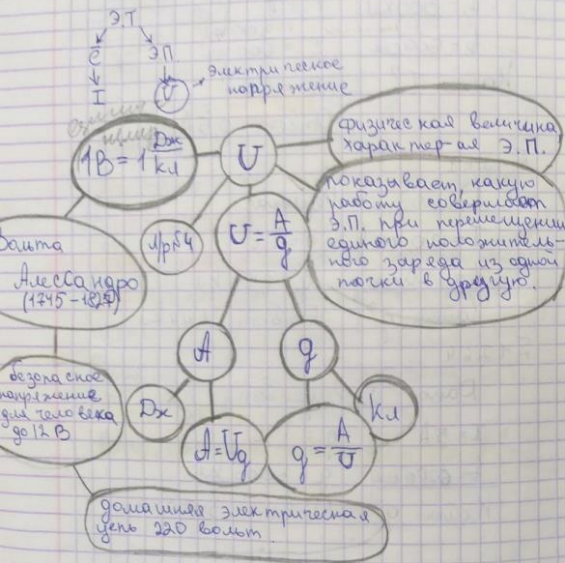 Э.Т
ē Э.П.
I U
электрическое
напряжение
единица
1В = 1 Дж/кл
U
физическая величина
характер-ая Э.П.
показывает, какую
работу совершает
Э.П. при перемещении
единого положитель-
ного заряда из одной
точки в другую.
л/р №4
U = A/g
Вольта
Алессандро
(1745-1827)
A
g
безопасное
напряжение
для человека
до 12 В
Дж
Кл
A = Ug
g = A/U
домашняя электрическая
цепь 220 вольт